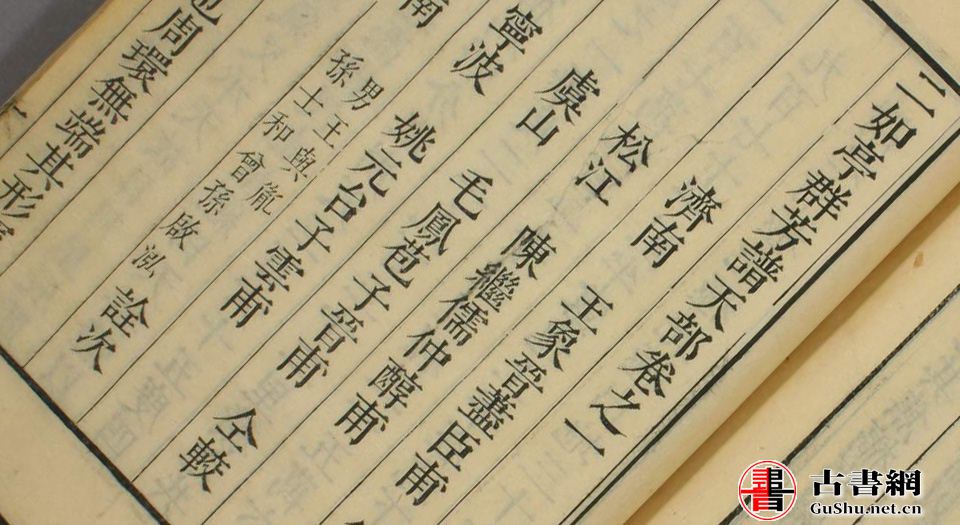 二如亭群芳譜天部卷之一
濟南 王象晉藎臣甫
松江 陳繼儒仲醇甫
虞山 毛鳳苞子晉甫 仝較
寧波 姚元台子雲甫
南
男王與胤
孫士和曾孫啟泓 詮次
也周環無端其形
古書網
GuShu.net.cn
書